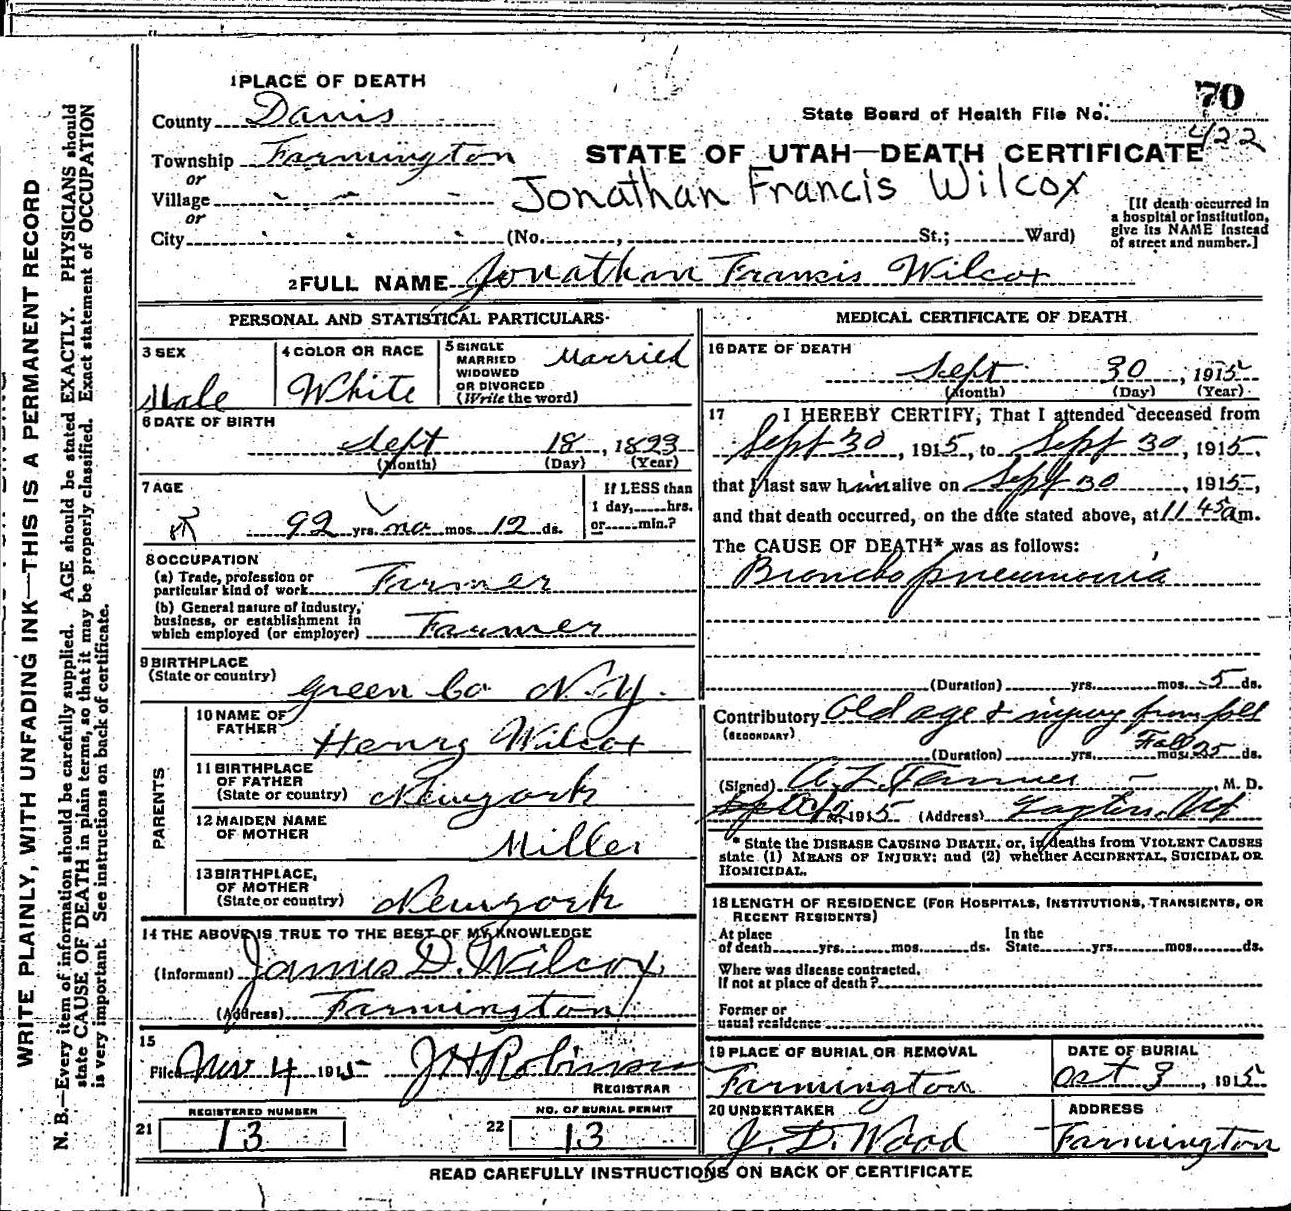 1 PLACE OF DEATH
County Davis
Township Farmington
or
Village
or
City (No. , St.; Ward)
State Board of Health File No. 70
422
STATE OF UTAH—DEATH CERTIFICATE
Jonathan Francis Wilcox
[If death occurred in
a hospital or institution,
give its NAME instead
of street and number.]
2 FULL NAME Jonathan Francis Wilcox
PERSONAL AND STATISTICAL PARTICULARS
3 SEX
Male
4 COLOR OR RACE
White
5 SINGLE
MARRIED
WIDOWED
OR DIVORCED
(Write the word)
Married
6 DATE OF BIRTH
Sept 18, 1823
(Month) (Day) (Year)
7 AGE
92 yrs. no mos. 12 ds.
If LESS than
1 day, hrs.
or min.?
8 OCCUPATION
(a) Trade, profession or
particular kind of work Farmer
(b) General nature of industry,
business, or establishment in
which employed (or employer) Farmer
9 BIRTHPLACE
(State or country) Green Co N.Y.
PARENTS
10 NAME OF
FATHER Henry Wilcox
11 BIRTHPLACE
OF FATHER
(State or country) Newyork
12 MAIDEN NAME
OF MOTHER Miller
13 BIRTHPLACE,
OF MOTHER
(State or country) Newyork
14 THE ABOVE IS TRUE TO THE BEST OF MY KNOWLEDGE
(Informant) James D. Wilcox
(Address) Farmington
15
Filed Nov 4 1915 J H Robinson
REGISTRAR
21 REGISTERED NUMBER
13
22 NO. OF BURIAL PERMIT
13
MEDICAL CERTIFICATE OF DEATH
16 DATE OF DEATH
Sept 30, 1915
(Month) (Day) (Year)
17 I HEREBY CERTIFY, That I attended deceased from
Sept 30, 1915, to Sept 30, 1915,
that I last saw him alive on Sept 30, 1915,
and that death occurred, on the date stated above, at 11 45 am.
The CAUSE OF DEATH* was as follows:
Broncho pneumonia
(Duration) yrs. mos. 5 ds.
Contributory Old age & injury from fall
(SECONDARY)
Fall
(Duration) yrs. mos. 25 ds.
(Signed) A Z Tanner M. D.
Oct 2, 1915 (Address) Layton, Ut
* State the DISEASE CAUSING DEATH, or, in deaths from VIOLENT CAUSES
state (1) MEANS OF INJURY; and (2) whether ACCIDENTAL, SUICIDAL OR
HOMICIDAL.
18 LENGTH OF RESIDENCE (FOR HOSPITALS, INSTITUTIONS, TRANSIENTS, OR
RECENT RESIDENTS)
At place
of death yrs. mos. ds.
In the
State yrs. mos. ds.
Where was disease contracted.
If not at place of death?
Former or
usual residence
19 PLACE OF BURIAL OR REMOVAL
Farmington
DATE OF BURIAL
Oct 3, 1915
20 UNDERTAKER
J. D. Wood
ADDRESS
Farmington
READ CAREFULLY INSTRUCTIONS ON BACK OF CERTIFICATE
WRITE PLAINLY, WITH UNFADING INK—THIS IS A PERMANENT RECORD
N. B.—Every item of information should be carefully supplied. AGE should be stated EXACTLY. PHYSICIANS should
state CAUSE OF DEATH in plain terms, so that it may be properly classified. Exact statement of OCCUPATION
is very important. See instructions on back of certificate.